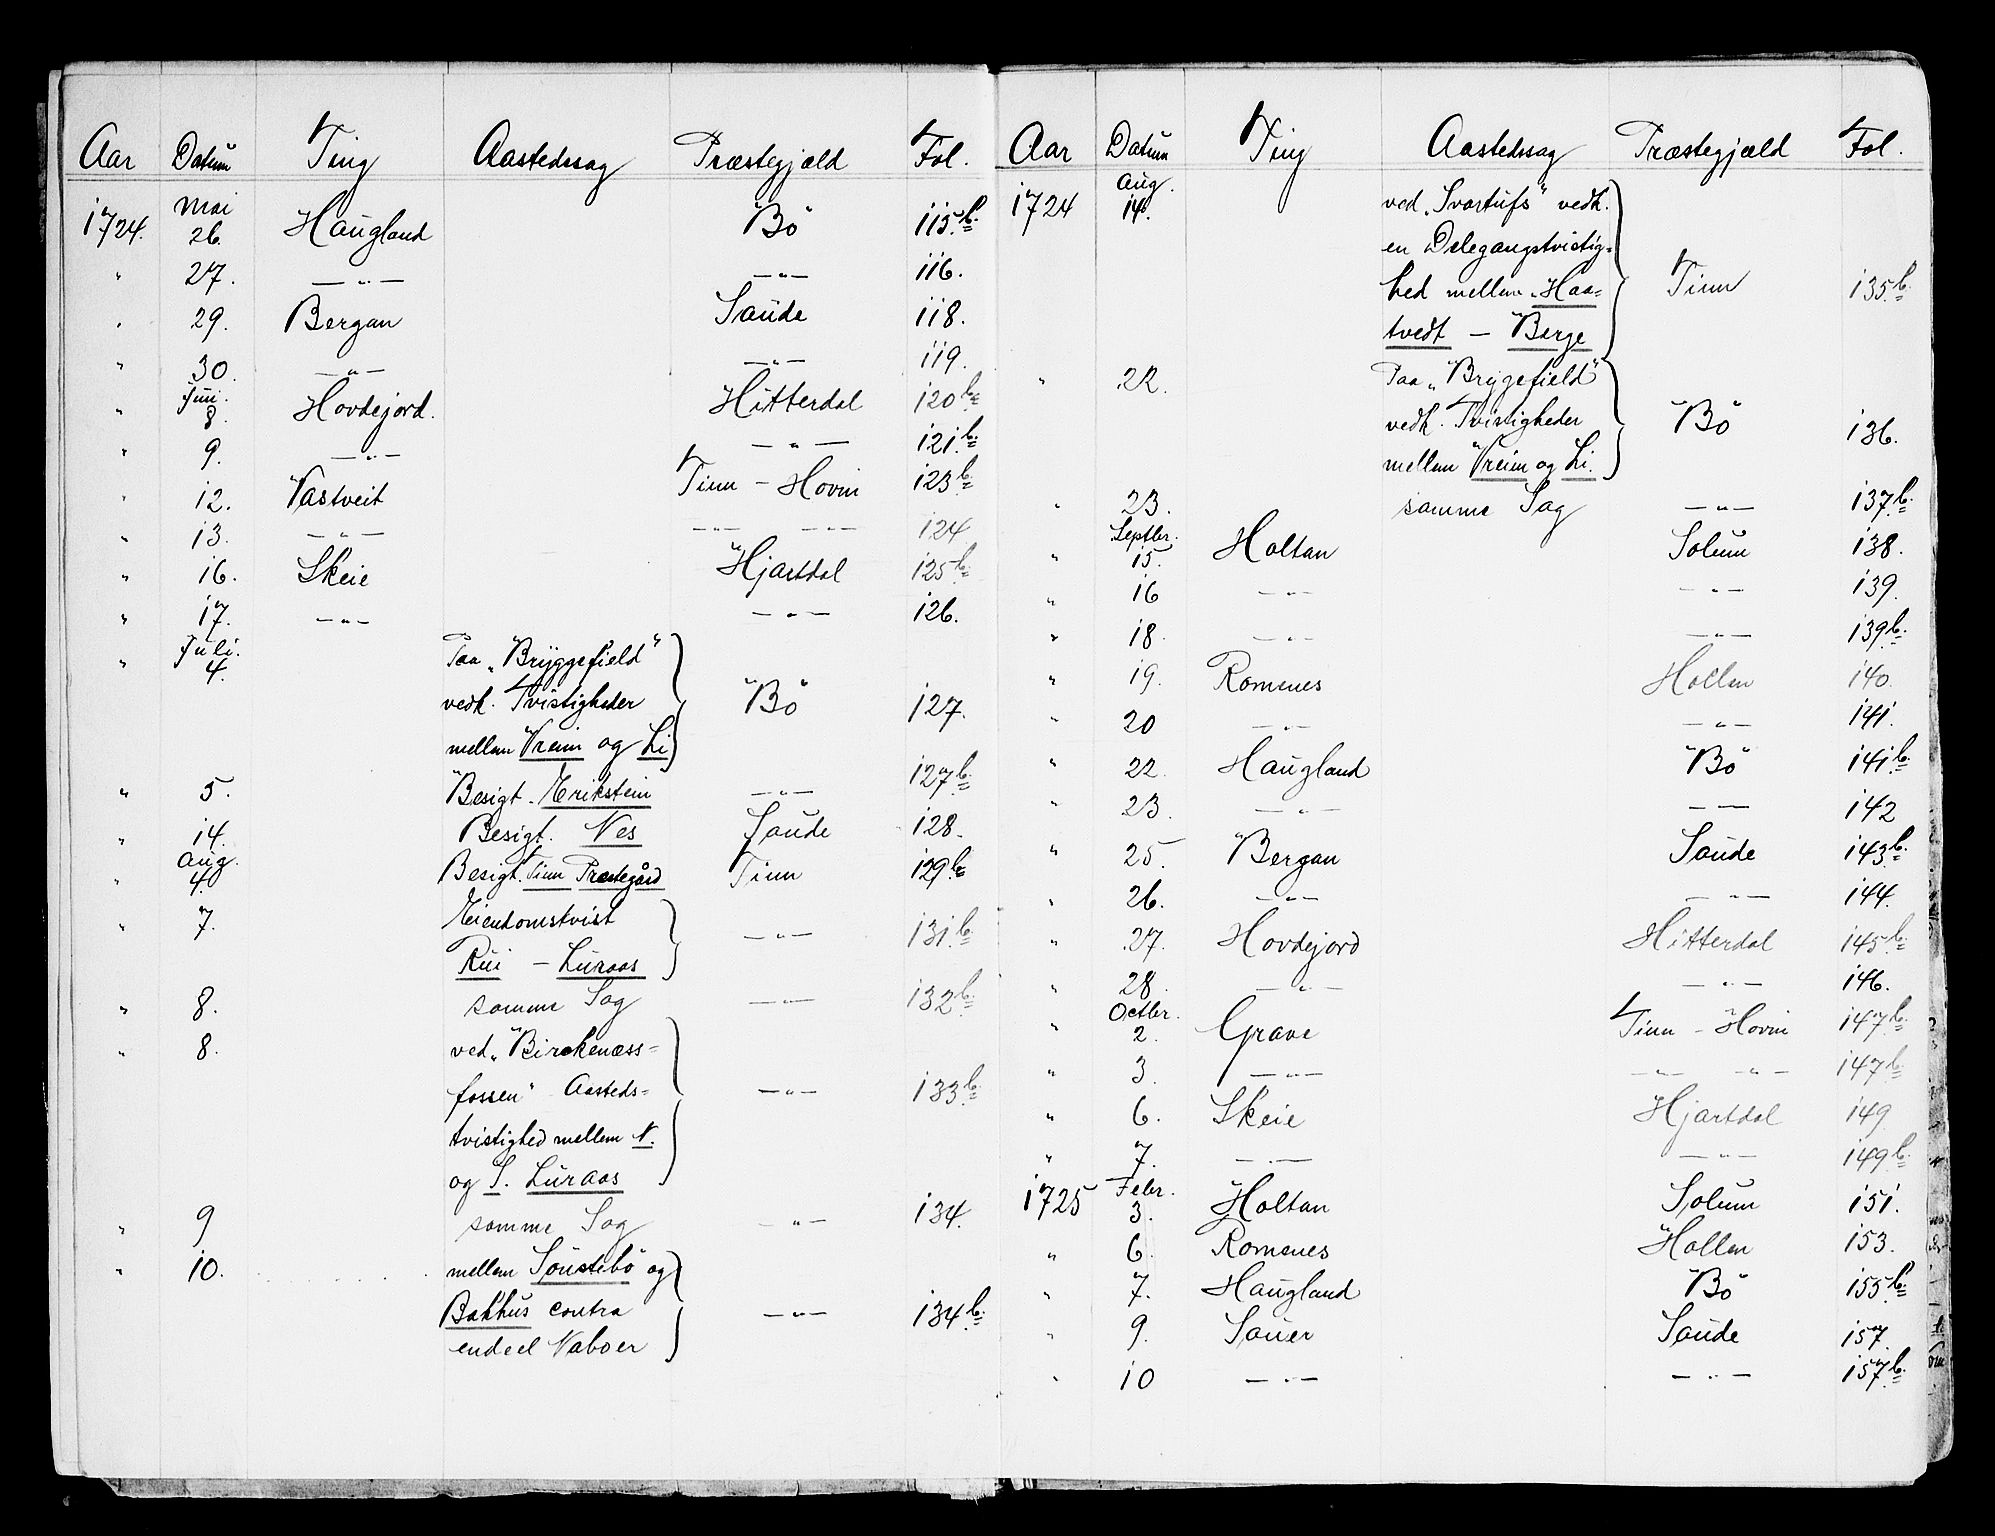 Aar Datum Ting Aastedssag Præstegjæld Fol.
1724. Mai 26. Haugland Bö 115.b.
" 27. —"— —"— 116.
" 29. Bergan Saude 118.
" 30. —"— —"— 119.
" Juni 8. Hovdejord. Hitterdal 120.b.
" 9. —"— —"— 121.b.
" 12. Vastveit Tinn - Hovin 123.b.
" 13. —"— —"— —"— 124
" 16. Skeie Hjartdal 125.b.
" 17. —"— —"— 126.
" Juli. 4. Paa „Bryggefield"
vedk. Tvistigheder Bö 127.
mellem Vreim og Li
" 5. Besigt. Erikstein —"— 127.b.
" 14. Besigt. Nes Saude 128.
" Aug. 4. Besigt. Tinn Præstegård Tinn 129.b.
" 7. Eiendomstvist
Rui - Luraas —"— 131.b.
" 8. samme Sag —"— 132.b.
" 8. ved „Birckenæss=
fossen" Aasteds= —"— 133.b.
tvistighed mellem N.
og S. Luraas
" 9 samme Sag —"— 134.
" 10. mellem Sönstebö og
Bakhus contra —"— 134.b.
endeel Naboer
Aar Datum Ting Aastedssag Præstegjæld Fol.
1724 Aug. 14. ved „Svartufs" vedk.
en Delegangstvistig=
hed mellem Haa= Tinn 135.b.
tvedt - Berge
" 22. Paa „Bryggefield"
vedk. Tvistigheder Bö 136.
mellem Vreim og Li.
" 23. samme Sag —"— 137.b.
" Septbr. 15. Holtan Solum 138.
" 16 —"— —"— 139.
" 18. —"— —"— 139.b.
" 19. Romenes Hollen 140.
" 20 —"— —"— 141.
" 22. Haugland Bö 141.b.
" 23. —"— — — 142
" 25. Bergan Saude 143.b.
" 26. —"— —"— 144.
" 27. Hovdejord Hitterdal 145.b.
" 28. —"— —"— 146.
" Octbr. 2. Grave Tinn - Hovin 147.b.
" 3. —"— —"— —"— 147.b.
" 6. Skeie Hjartdal 149
" 7. —"— —"— 149.b.
1725 Febr. 3. Holtan Solum 151.
" 6. Romenes Hollen 153.
" 7. Haugland Bö 155.b.
" 9. Sauer Saude 157.
" 10 —"— —"— 157.b.